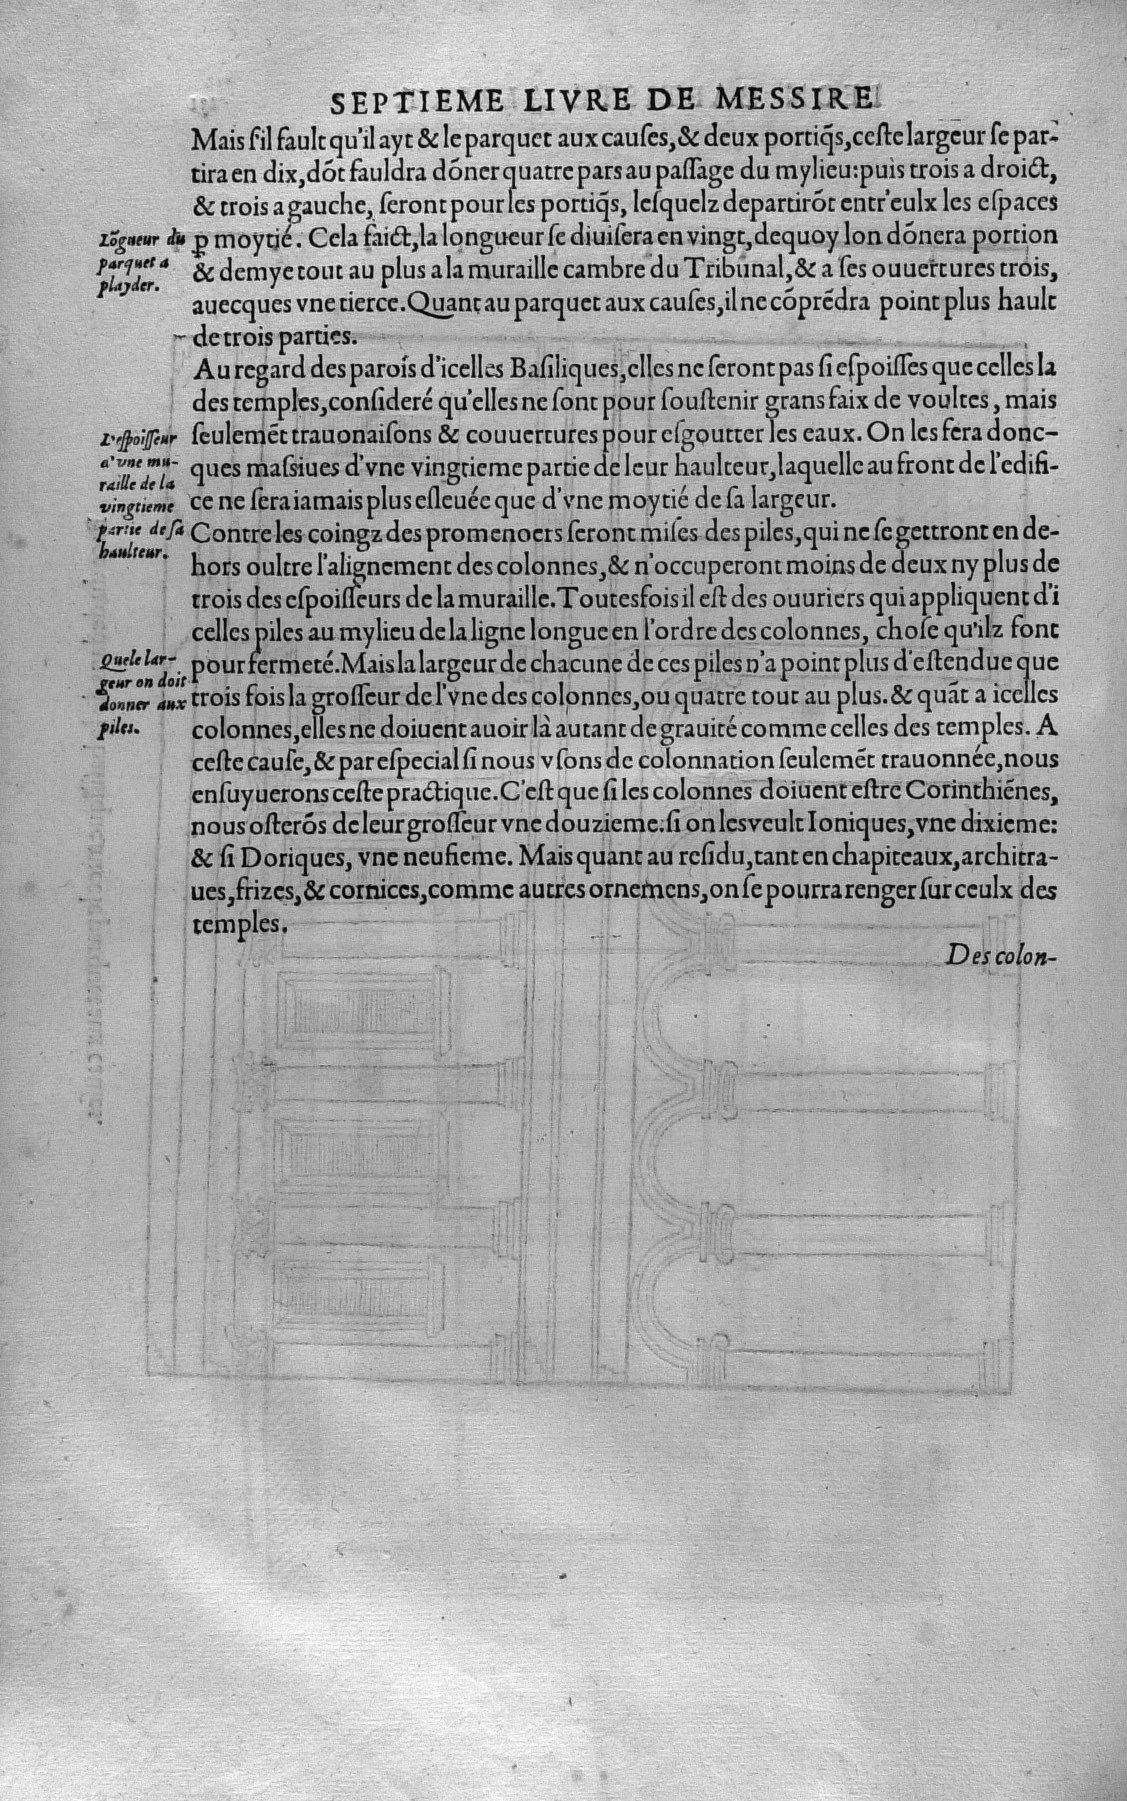 SEPTIEME LIVRE DE MESSIRE
Mais ſ'il fault qu'il ayt & le parquet aux cauſes, & deux portiq̃s, ceſte largeur ſe par-
tira en dix, dõt fauldra dõner quatre pars au paſſage du mylieu: puis trois a droict,
& trois a gauche, ſeront pour les portiq̃s, leſquelz departirõt entr'eulx les eſpaces
ꝑ moytié. Cela faict, la longueur ſe diuiſera en vingt, dequoy lon dõnera portion
& demye tout au plus a la muraille cambre du Tribunal, & a ſes ouuertures trois,
auecques vne tierce. Quant au parquet aux cauſes, il ne cõprẽdra point plus hault
de trois parties.
Lõgneur du
parquet a
playder.
Au regard des parois d'icelles Baſiliques, elles ne ſeront pas ſi eſpoiſſes que celles la
des temples, conſideré qu'elles ne ſont pour ſouſtenir grans faix de voultes, mais
ſeulemẽt trauonaiſons & couuertures pour eſgoutter les eaux. On les fera donc-
ques maſsiues d'vne vingtieme partie de leur haulteur, laquelle au front de l'edifi-
ce ne ſera iamais plus eſleuée que d'vne moytié de ſa largeur.
L'eſpoiſſeur
d'vne mu-
raille de la
vingtieme
partie de ſa
haulteur.
Contre les coingz des promenoers ſeront miſes des piles, qui ne ſe gettront en de-
hors oultre l'alignement des colonnes, & n'occuperont moins de deux ny plus de
trois des eſpoiſſeurs de la muraille. Toutesfois il eſt des ouuriers qui appliquent d'i
celles piles au mylieu de la ligne longue en l'ordre des colonnes, choſe qu'ilz font
pour fermeté. Mais la largeur de chacune de ces piles n'a point plus d'eſtendue que
trois fois la groſſeur de l'vne des colonnes, ou quatre tout au plus. & quãt a icelles
colonnes, elles ne doiuent auoir là autant de grauité comme celles des temples. A
ceſte cauſe, & par eſpecial ſi nous vſons de colonnation ſeulemẽt trauonnée, nous
enſuyuerons ceſte practique. C'eſt que ſi les colonnes doiuent eſtre Corinthiẽnes,
nous oſterõs de leur groſſeur vne douzieme: ſi on les veult Ioniques, vne dixieme:
& ſi Doriques, vne neufieme. Mais quant au reſidu, tant en chapiteaux, architra-
ues, frizes, & cornices, comme autres ornemens, on ſe pourra renger ſur ceulx des
temples.
Quele lar-
geur on doit
donner aux
piles.
Des colon-